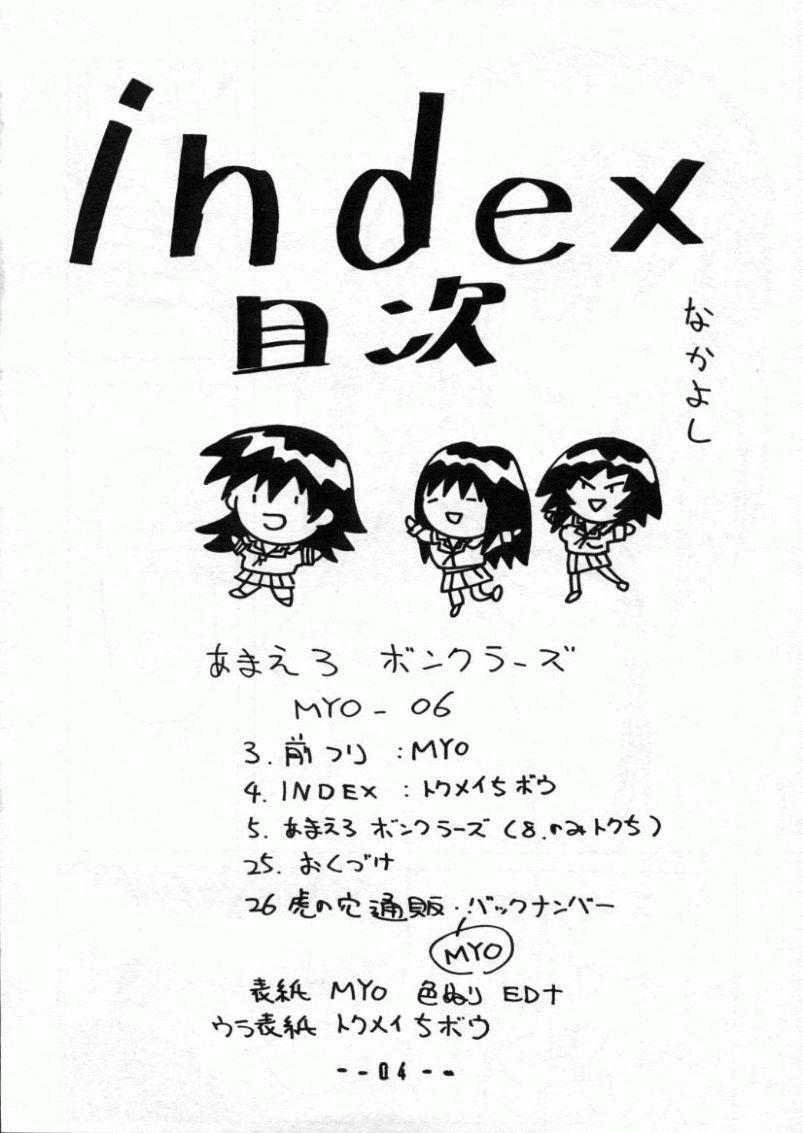 index
目次
なかよし
あまえろ ボンクラーズ
MYO - 06
3. 前フリ : MYO
4. INDEX : トクメイちボウ
5. あまえろ ボンクラーズ (8.のみトクち)
25. おくづけ
26 虎の穴通販・バックナンバー
MYO
表紙 MYO 色ぬり ED+
ウラ表紙 トクメイちボウ
--04--